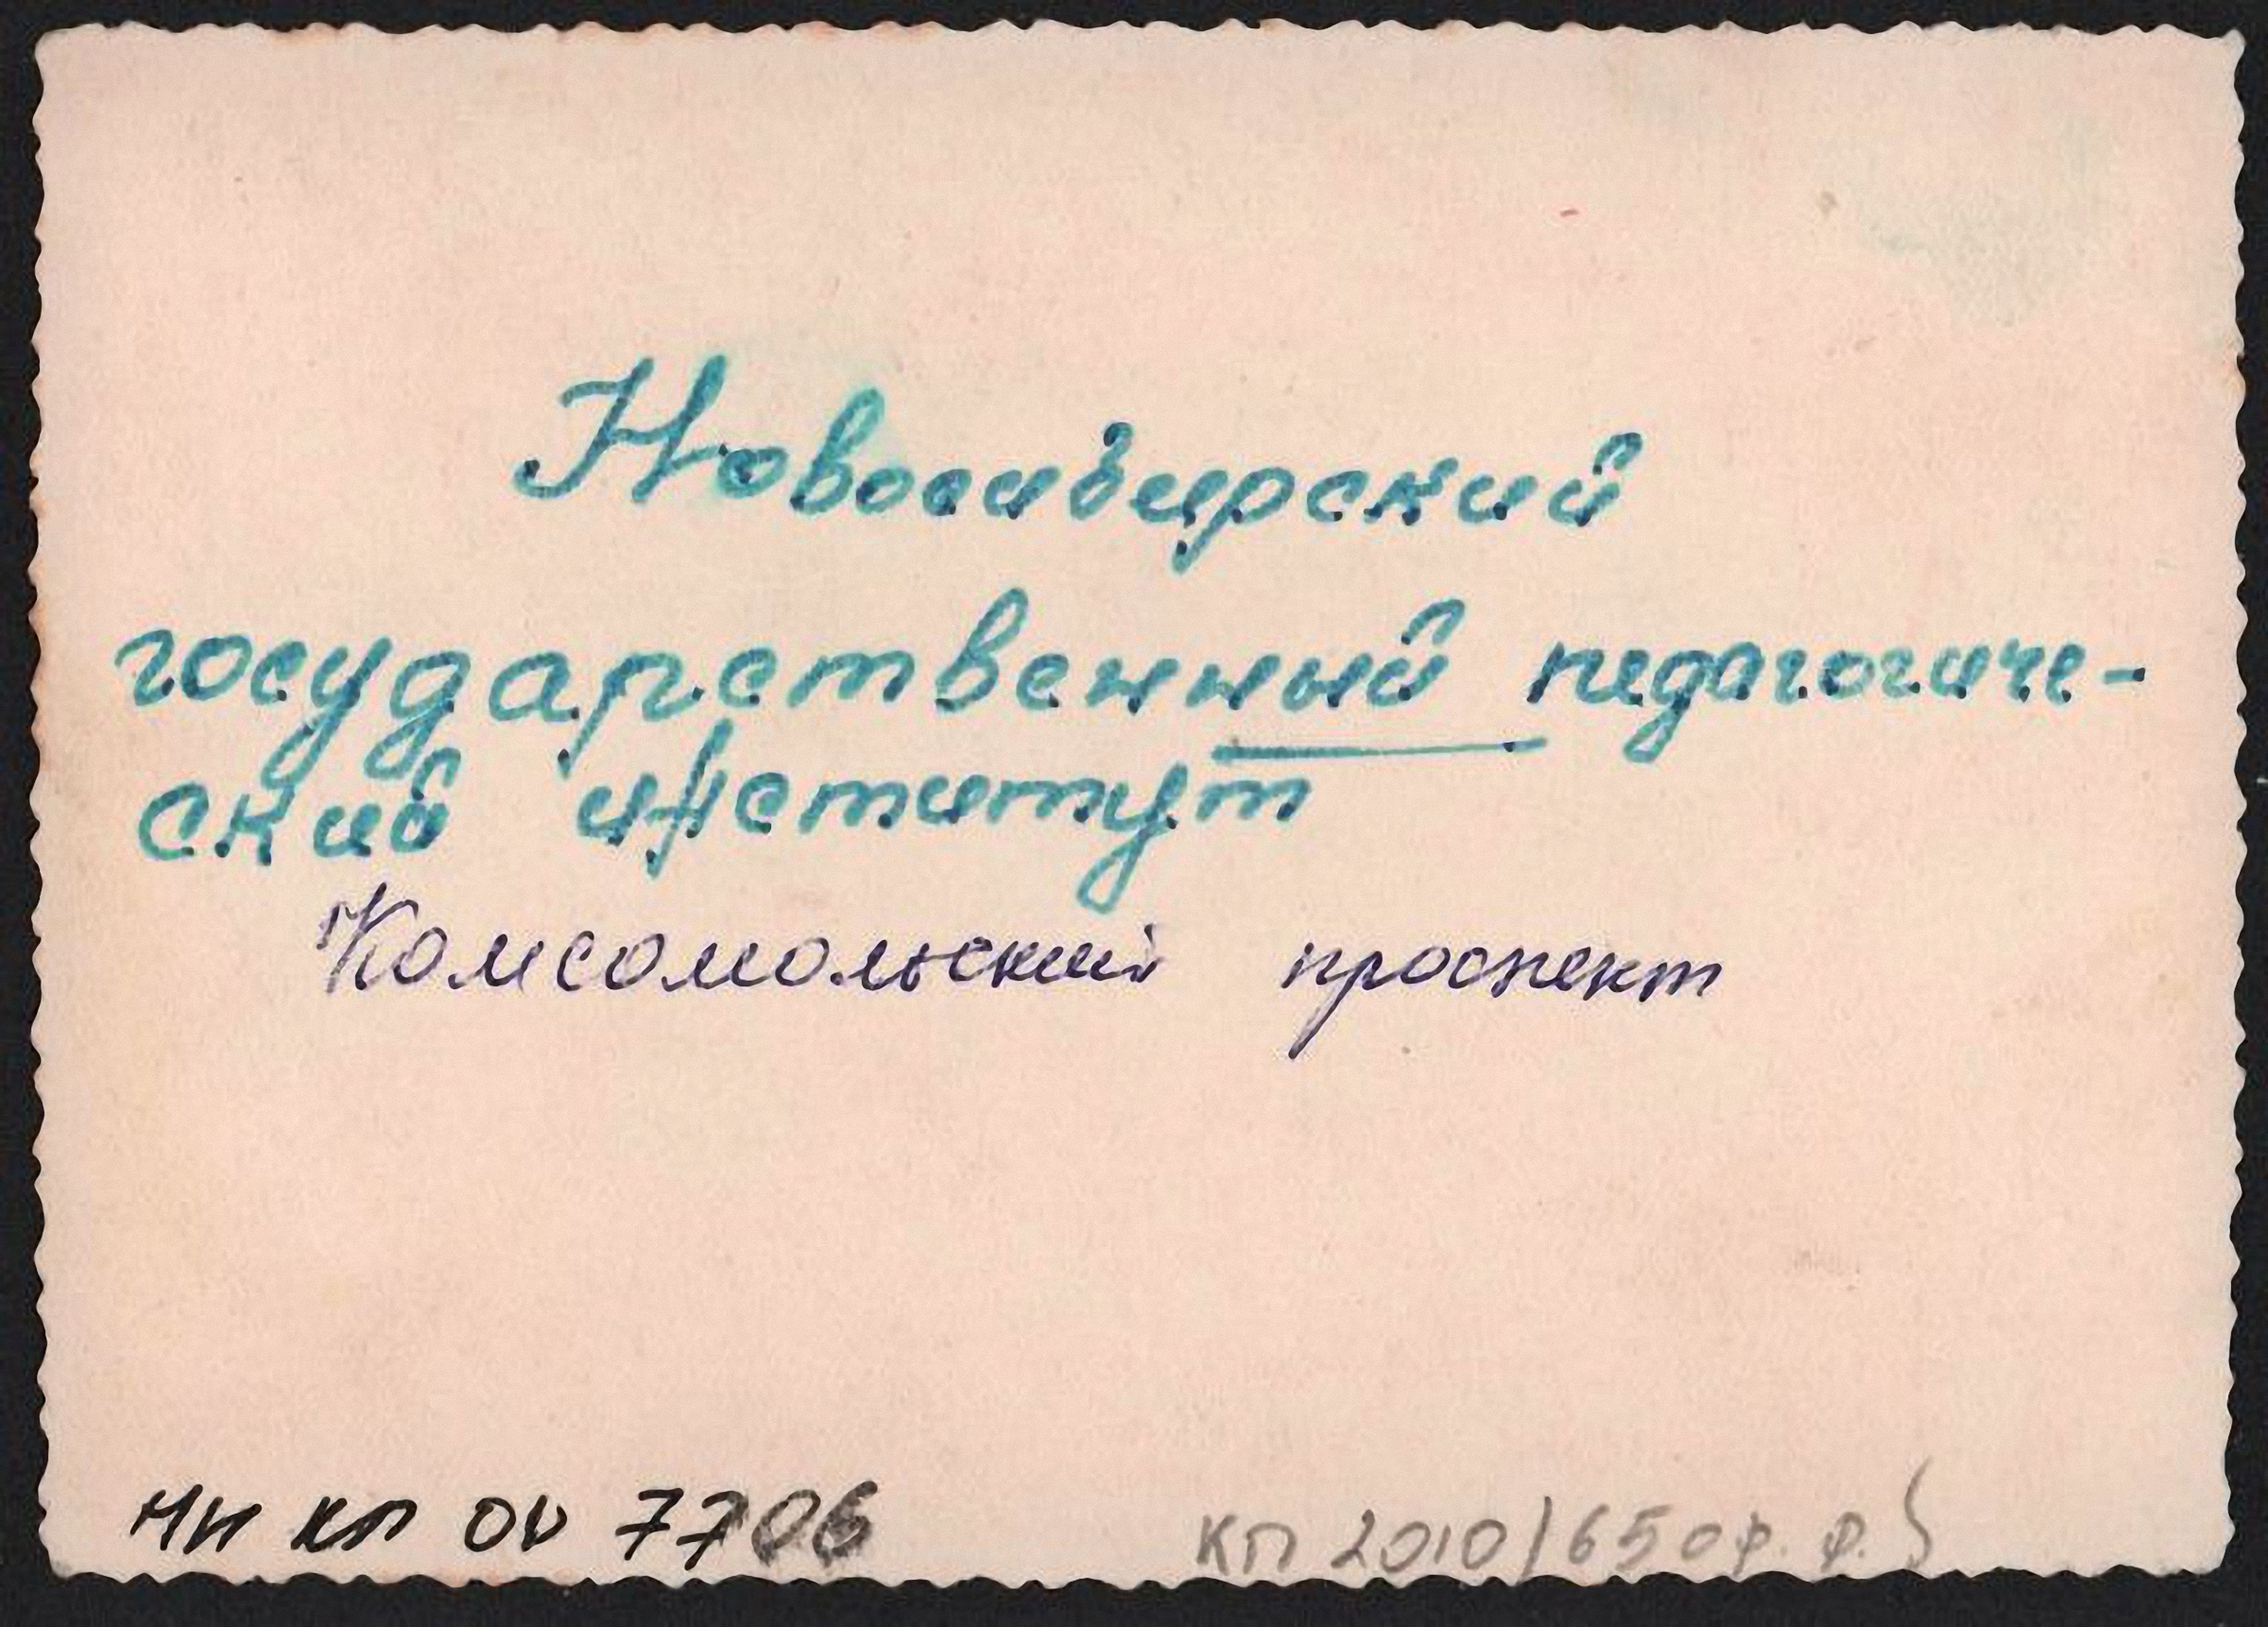 Новосибирский
государственный педагогиче-
ский институт
Комсомольский проспект
НИ КП ОФ 7706
КП 2010/650ф. Ф.